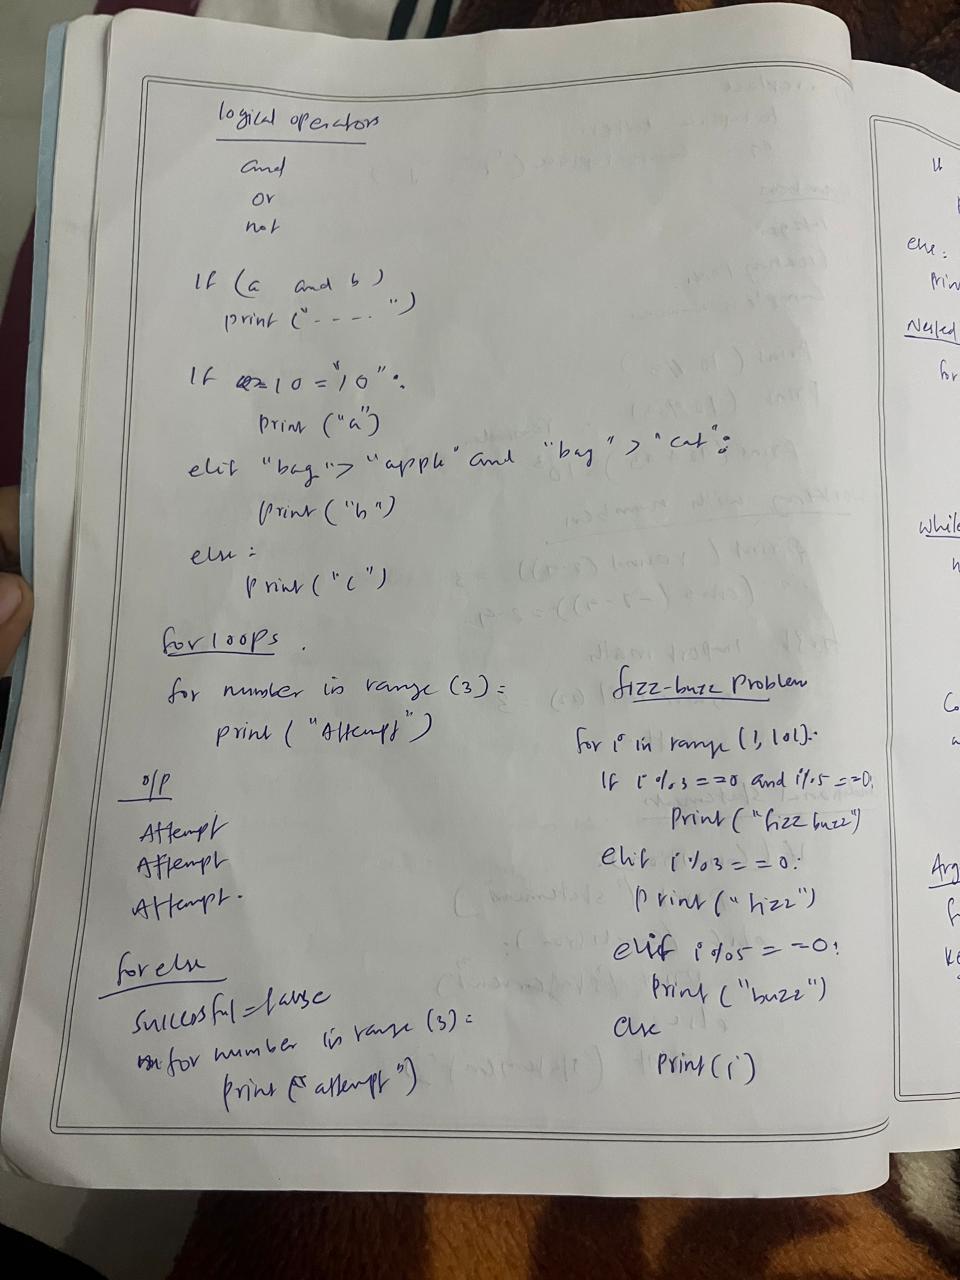 logical operators
and
or
not
If (a and b)
print ("----")
If 10 = "10":
print ("a")
elif "bag" > "apple" and "bag" > "cat":
print ("b")
else :
print ("c")
for loops.
for number in range (3):
print ("Attempt")
o/p
Attempt
Attempt
Attempt.
for else
Successful = false
for number in range (3):
print ("attempt")
fizz-buzz Problem
for i in range (1, 101):
If i % 3 == 0 and i % 5 == 0:
Print ("fizz buzz")
elif i % 3 == 0:
print ("fizz")
elif i % 5 == 0:
Print ("buzz")
else
Print (i)
else:
Prin
Nested
for
While
Arg